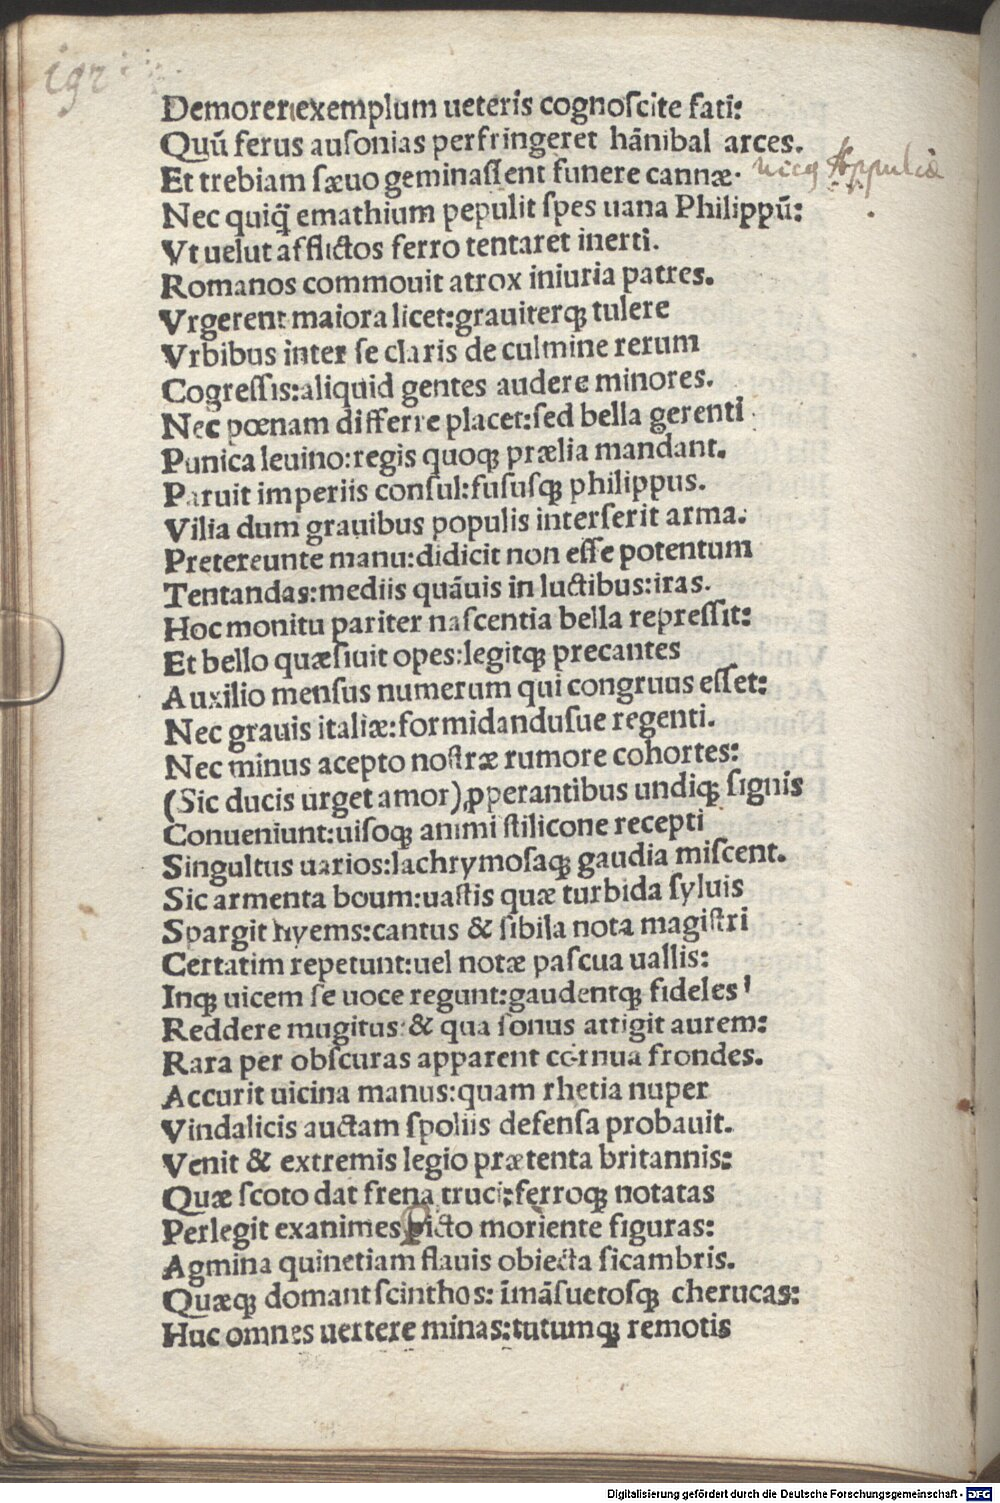 192
Demorer: exemplum ueteris cognoſcite fati:
Quū ferus auſonias perfringeret hānibal arces.
Et trebiam ſæuo geminaſſent funere cannæ.
uicus Appuliæ
Nec quiq̄ emathium pepulit ſpes uana Philippū:
Vt uelut afflictos ferro tentaret inerti.
Romanos commouit atrox iniuria patres.
Vrgerent maiora licet: grauiterqꝫ tulere
Vrbibus inter ſe claris de culmine rerum
Cogreſſis: aliquid gentes audere minores.
Nec pœnam differre placet: ſed bella gerenti
Punica leuino: regis quoqꝫ prælia mandant.
Paruit imperiis conſul: fuſuſqꝫ philippus.
Vilia dum grauibus populis interſerit arma:
Pretereunte manu: didicit non eſſe potentum
Tentandas: mediis quāuis in luctibus: iras.
Hoc monitu pariter naſcentia bella repreſſit:
Et bello quæſiuit opes: legitqꝫ precantes
Auxilio menſus numerum qui congruus eſſet:
Nec grauis italiæ: formidanduſue regenti.
Nec minus acepto noſtræ rumore cohortes:
(Sic ducis urget amor) ꝓperantibus undiqꝫ ſignis
Conueniunt: uiſoqꝫ animi ſtilicone recepti
Singultus uarios: lachrymoſaqꝫ gaudia miſcent.
Sic armenta boum: uaſtis quæ turbida ſyluis
Spargit hyems: cantus & ſibila nota magiſtri
Certatim repetunt: uel notæ paſcua uallis:
Inqꝫ uicem ſe uoce regunt: gaudentqꝫ fideles
Reddere mugitus: & qua ſonus attigit aurem:
Rara per obſcuras apparent cornua frondes.
Accurit uicina manus: quam rhetia nuper
Vindalicis auctam ſpoliis defenſa probauit.
Venit & extremis legio prætenta britannis:
Quæ ſcoto dat frena truci: ferroqꝫ notatas
Perlegit exanimes Picto moriente figuras:
Agmina quinetiam flauis obiecta ſicambris.
Quæqꝫ domant ſcinthos: īmāſuetoſqꝫ cherucas:
Huc omnes uertere minas: tutumqꝫ remotis
Digitalisierung gefördert durch die Deutsche Forschungsgemeinschaft - DFG